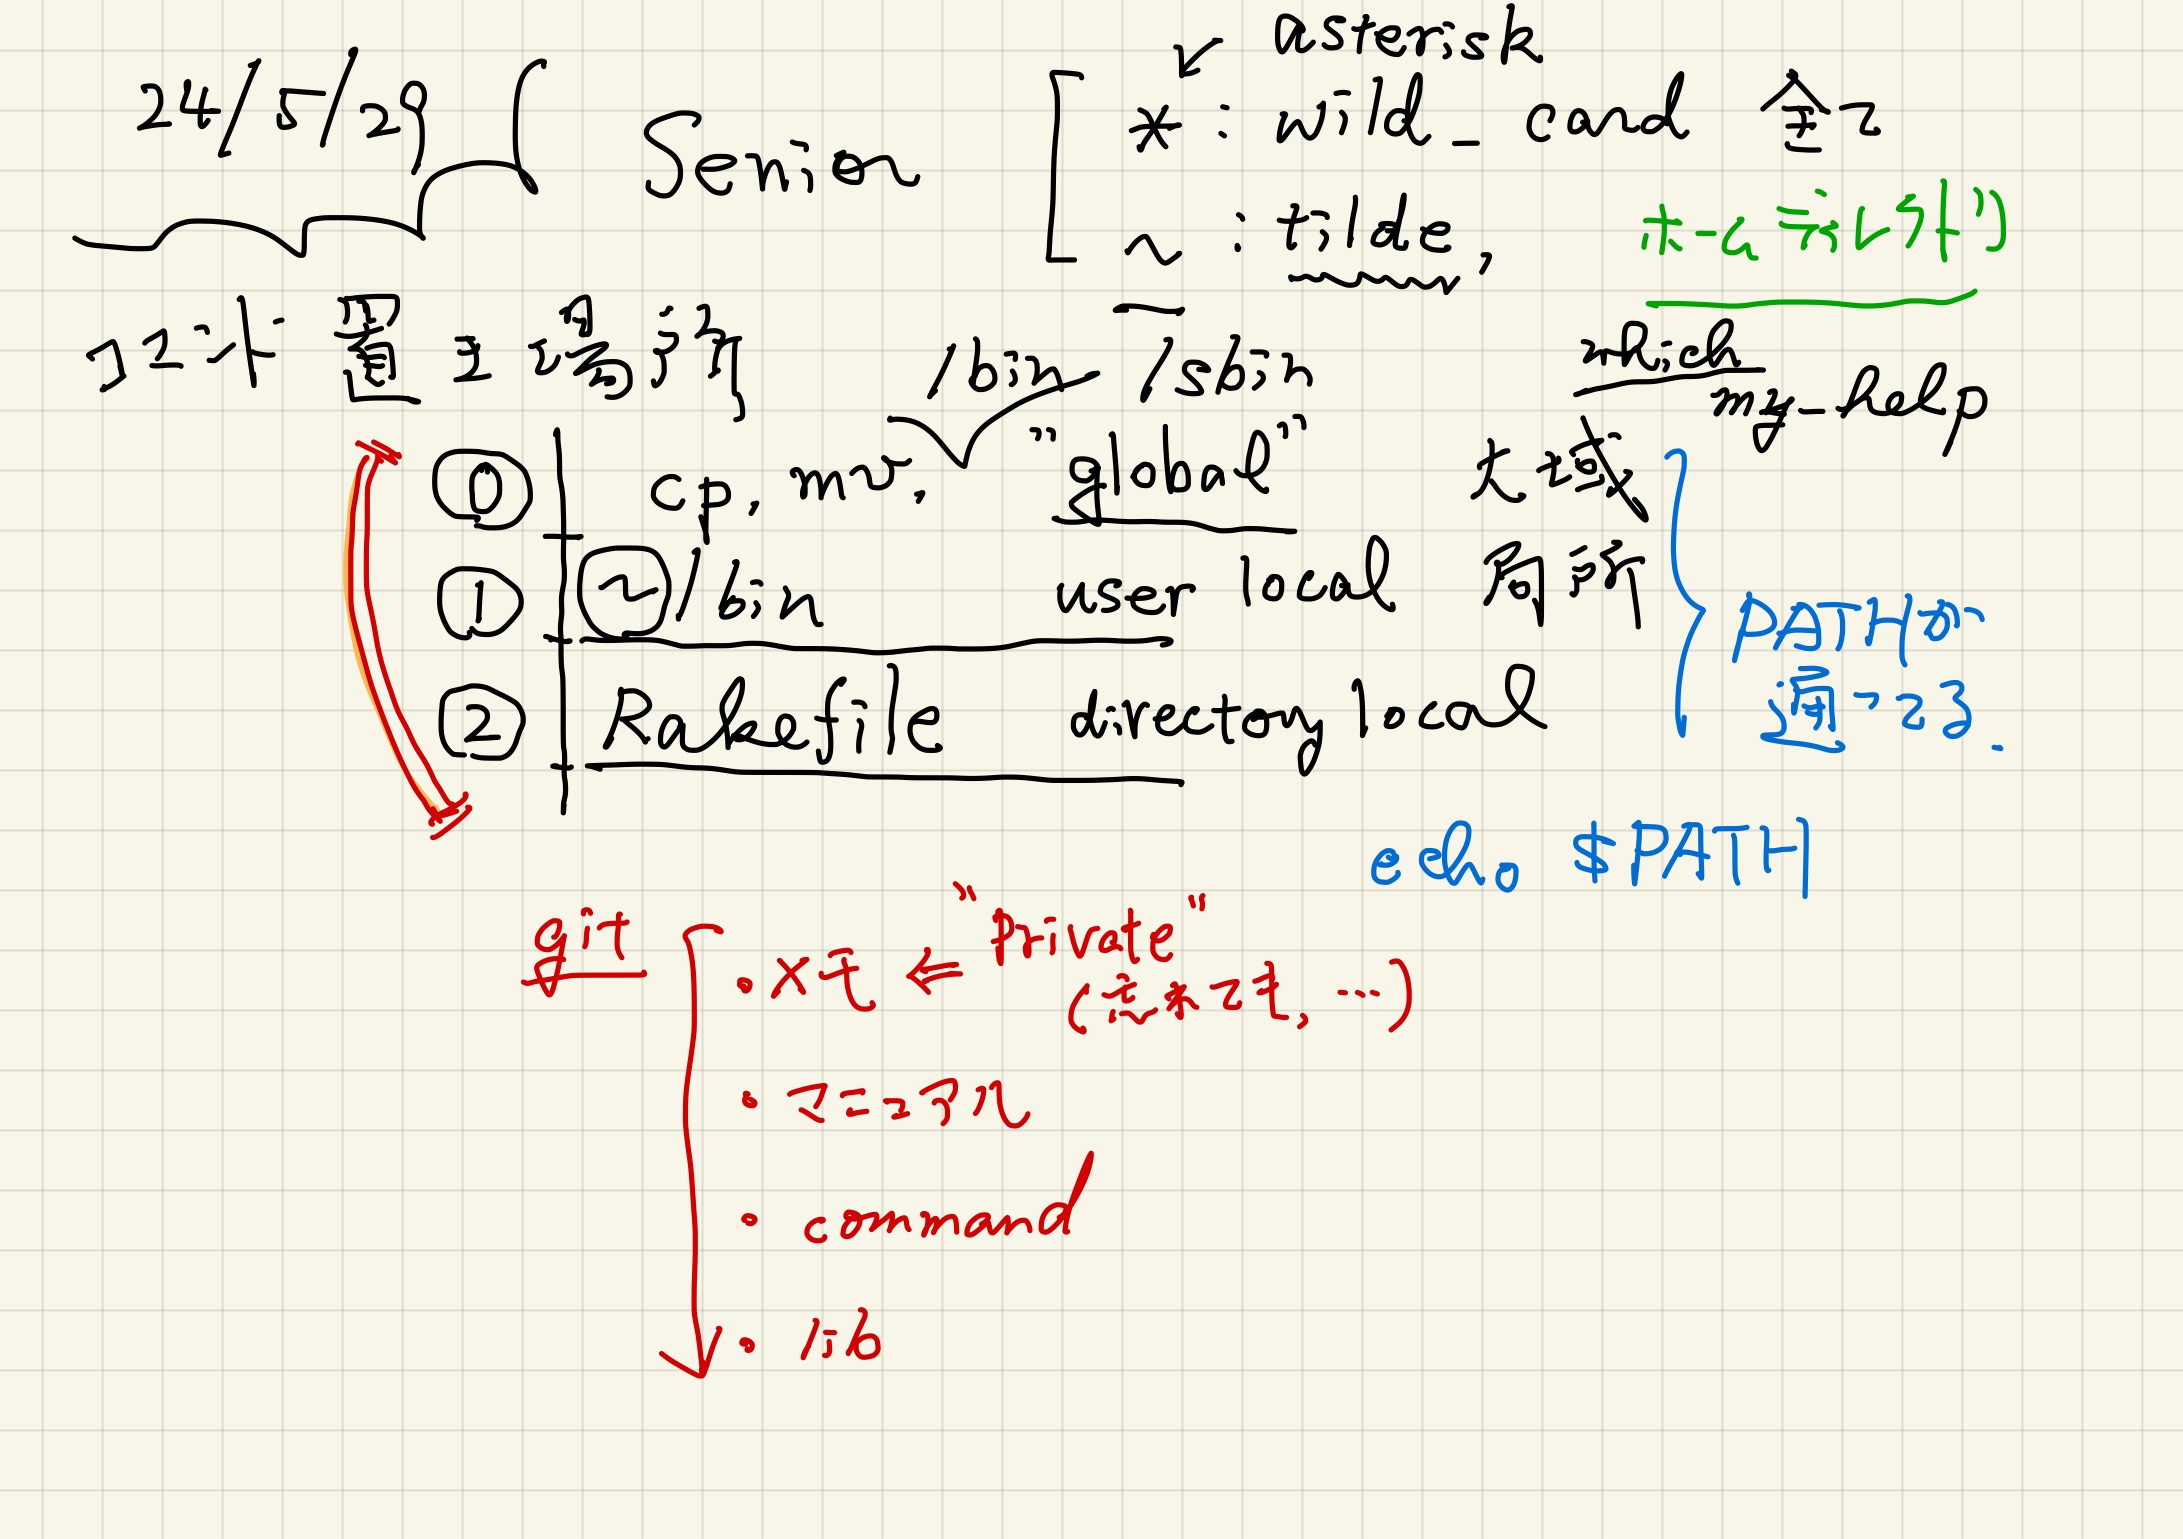 24/5/29
Senior
asterisk
* : wild_card 全て
~ : tilde, ホームディレクトリ
コマンド 置き場所
/bin /sbin
which
my_help
⓪ cp, mv, "global" 大域
① ~/bin user local 局所
② Rakefile directory local
PATHが
通ってる.
echo $PATH
git
・メモ ⇐ "Private"
(意味でも, …)
・マニュアル
・command
・lib